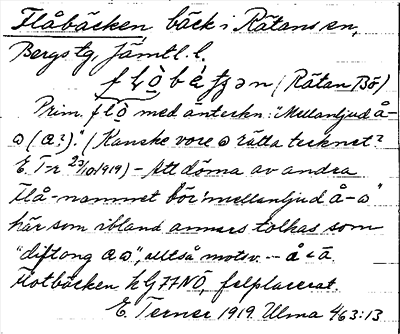 Flåbäcken bäck i Rätans sn,
Bergs tg, Jämtl. l.
(Rätan Bö)
Prim. flō med anteckn.: "Mellanljud å-
ɔ (a?)." (Kanske vore ɔ rätta tecknet?
E. T-r 23/10 1919) – Att döma av andra
Flå-namnet bör "mellanljud å-ɔ"
här som ibland annars tolkas som
"diftong aɔ", alltså motsv. -- å < ā.
Flotbäcken k G77NÖ, felplacerat.
E. Terner 1919. Ulma 463:13